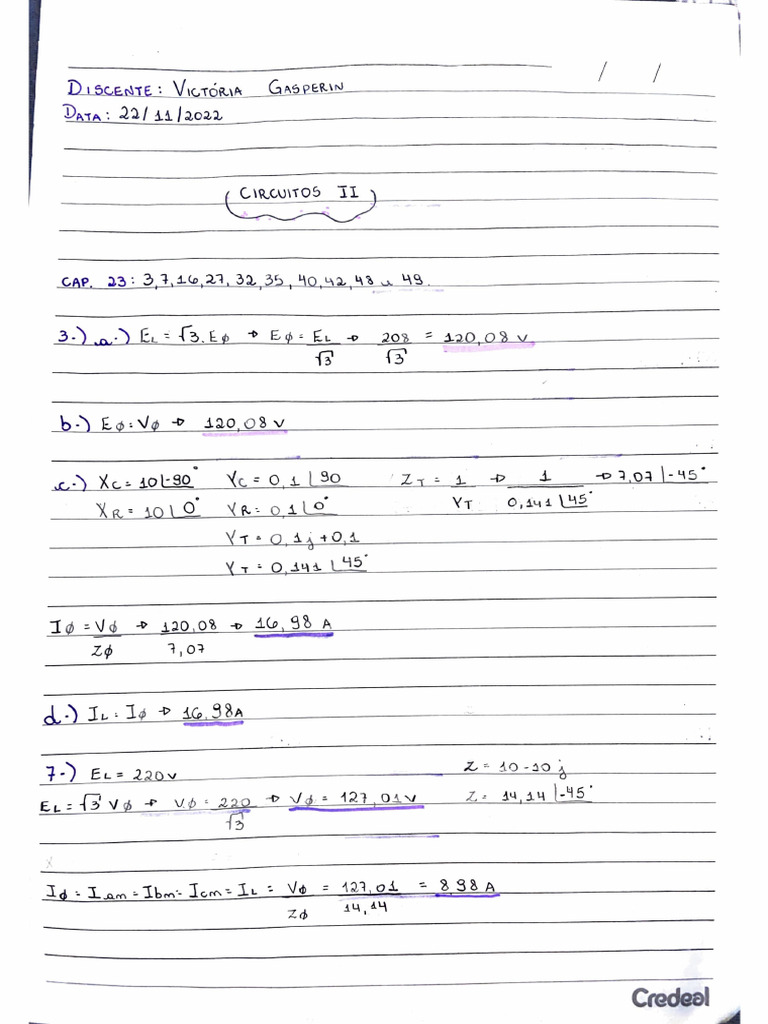 / /
DISCENTE: VICTÓRIA GASPERIN
DATA: 22/11/2022
CIRCUITOS II
CAP. 23: 3,7,16,27,32,35,40,42,48 e 49.
3.) a.) EL = √3.Eφ → Eφ = EL/√3 → 208/√3 = 120,08 V
b.) Eφ = Vφ → 120,08 V
c.) XC = 10∠-90° YC = 0,1∠90 ZT = 1/YT → 1/0,141∠45° → 7,07∠-45°
XR = 10∠0° YR = 0,1∠0°
YT = 0,1j + 0,1
YT = 0,141∠45°
Iφ = Vφ/Zφ → 120,08/7,07 → 16,98 A
d.) IL = Iφ → 16,98 A
7.) EL = 220 V Z = 10 - 10j
EL = √3 Vφ → Vφ = 220/√3 → Vφ = 127,01 V Z = 14,14∠-45°
Iφ = Ian = Ibn = Icn = IL = Vφ/Zφ = 127,01/14,14 = 8,98 A
Credeal